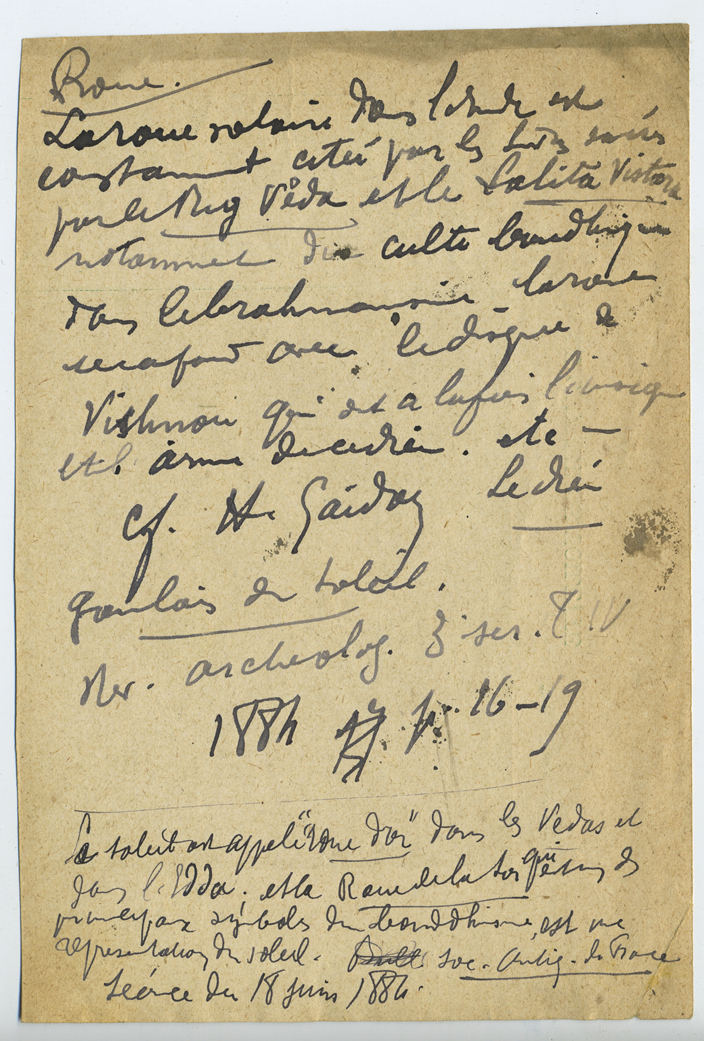 Roue.
La roue solaire dans l'Inde est
constamment citée par les livres sacrés
par le Rig Véda et le Lalita Vistara
notamment du culte bouddhique
dans le brahmanisme la roue
se confond avec le disque de
Vishnou qui est à la fois l'insigne
et l'arme de ce dieu. etc —
cf. H. Gaidoz Le dieu
gaulois du soleil.
Rev. archeolog. 3e ser. T. IV
1884 p. 16-19
Le soleil est appelé "roue d'or" dans les Vedas et
dans l'Edda, et la Roue de la Loi qui est un des
principaux symboles du bouddhisme, est une
représentation du soleil. Bull Soc. Antiq. de France
Séance du 18 juin 1884.